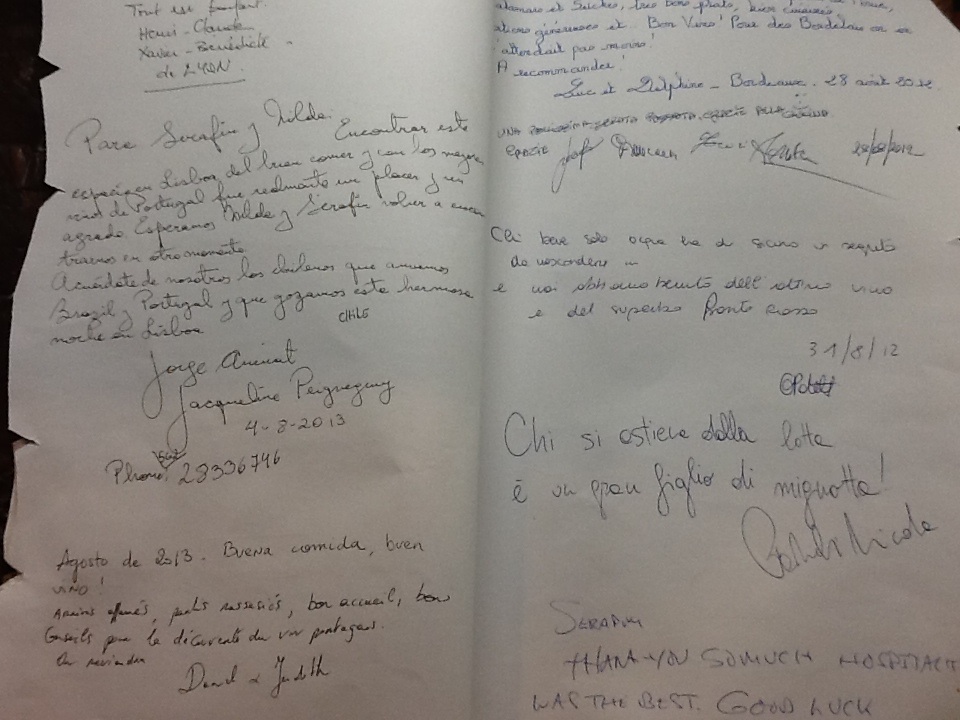 Tout est parfait.
Henri-Claude
Xavier-Bénédicte
de LYON.
Para Serafin y Nilda. Encontrar este
espacio en Lisboa, del buen comer y con los mejores
de Portugal fue realmente un placer y un
agrado. Esperamos Nilda y Serafin volver a encon
trarnos en otro momento.
Acuérdate de nosotros los chilenos que amamos
Brazil y Portugal y que gozamos esta hermosa
noche en Lisboa
CHILE
Jorge
Jacqueline
4-8-2013
Phone: 28336746
Agosto de 2013. Buena comida, buen
vino!
Arrivés affamés, partis rassasiés, bon accueil, bons
Conseils pour la découverte du vin portugais.
On reviendra
Daniel & Judith
très bons plats, bien cuisinés,
généreuses et Bon Vins! Pour des Bordelais on ne
s'attendait pas moins!
A recommander!
Luc et Delphine - Bordeaux. 28 août 2012
UNA SERATA
GRAZIE
Chi beve solo acqua ha di sicuro un segreto
da nascondere ...
e noi abbiamo bevuto dell'ottimo vino
e del superbo Porto rosso
31/8/12
Chi si astiene dalla lotta
è un gran figlio di mignotta!
Nicola
SERAFIM
THANK YOU SO MUCH HOSPITALIT
WAS THE BEST. GOOD LUCK